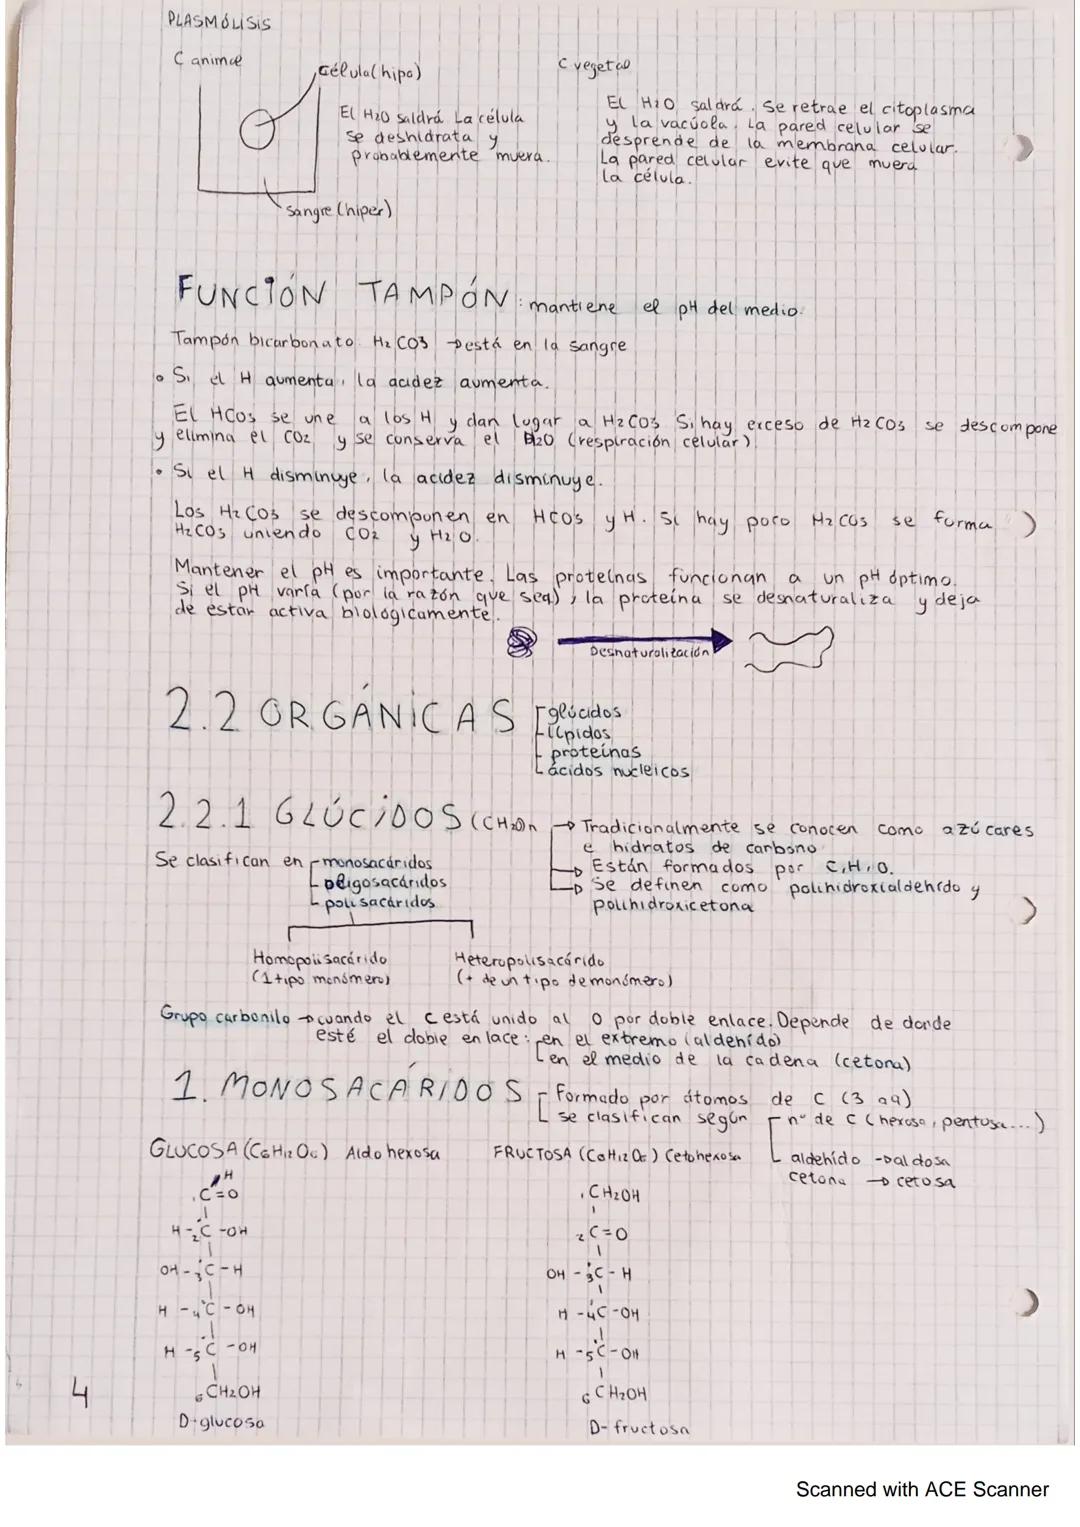 PLASMÓLISIS
C animal
Célula (hipo)
El H2O saldrá. La célula
se deshidrata y
probablemente muera.
Sangre (hiper)
C vegetal
El H2O saldrá. Se retrae el citoplasma
y la vacúola. La pared celular se
desprende de la membrana celular.
La pared celular evite que muera
la célula.
FUNCIÓN TAMPÓN: mantiene el pH del medio.
Tampón bicarbonato H2CO3 → está en la sangre
• Si el H aumenta, la acidez aumenta.
El HCO3 se une a los H y dan lugar a H2CO3. Si hay exceso de H2CO3 se descompone
y elimina el CO2 y se conserva el H2O (respiración celular).
• Si el H disminuye, la acidez disminuye.
Los H2CO3 se descomponen en HCO3 y H. Si hay poco H2CO3 se forma
H2CO3 uniendo CO2 y H2O.
Mantener el pH es importante. Las proteínas funcionan a un pH óptimo.
Si el pH varía (por la razón que sea), la proteína se desnaturaliza y deja
de estar activa biológicamente.
Desnaturalización
2.2 ORGÁNICAS
glúcidos
lípidos
proteínas
ácidos nucleicos
2.2.1 GLÚCIDOS (CH2O)n
→ Tradicionalmente se conocen como azúcares
e hidratos de carbono
→ Están formados por C, H, O.
→ Se definen como polihidroxialdehído y
polihidroxicetona
Se clasifican en
monosacáridos
oligosacáridos
polisacáridos
Homopolisacárido
(1 tipo monómero)
Heteropolisacárido
(+ de un tipo de monómero)
Grupo carbonilo → cuando el C está unido al O por doble enlace. Depende de donde
esté el doble enlace: en el extremo (aldehído)
en el medio de la cadena (cetona)
1. MONOSACÁRIDOS
Formado por átomos de C (3 a 9)
se clasifican según
nº de C (hexosa, pentosa...)
aldehído → aldosa
cetona → cetosa
GLUCOSA (C6H12O6) Aldohexosa
H
1C=O
H-2C-OH
OH-3C-H
H-4C-OH
H-5C-OH
6CH2OH
D-glucosa
FRUCTOSA (C6H12O6) Cetohexosa
1CH2OH
2C=O
OH-3C-H
H-4C-OH
H-5C-OH
6CH2OH
D-fructosa
4
Scanned with ACE Scanner